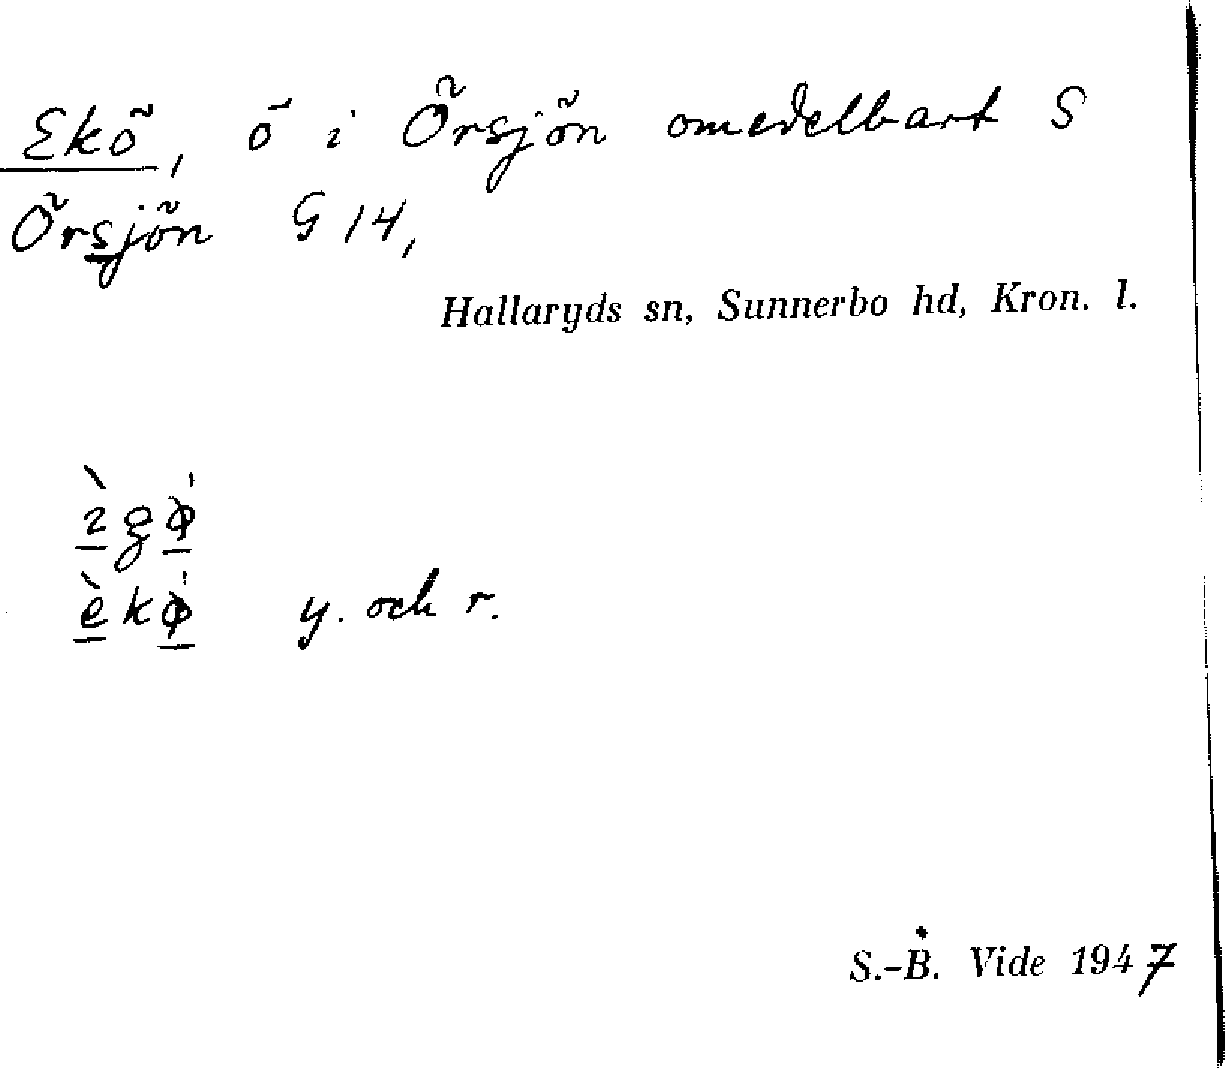 Ekö, ö i Örsjön omedelbart S
Örsjön G 14,
Hallaryds sn, Sunnerbo hd, Kron. l.
èkø̀ y. och r.
S.-B. Vide 1947